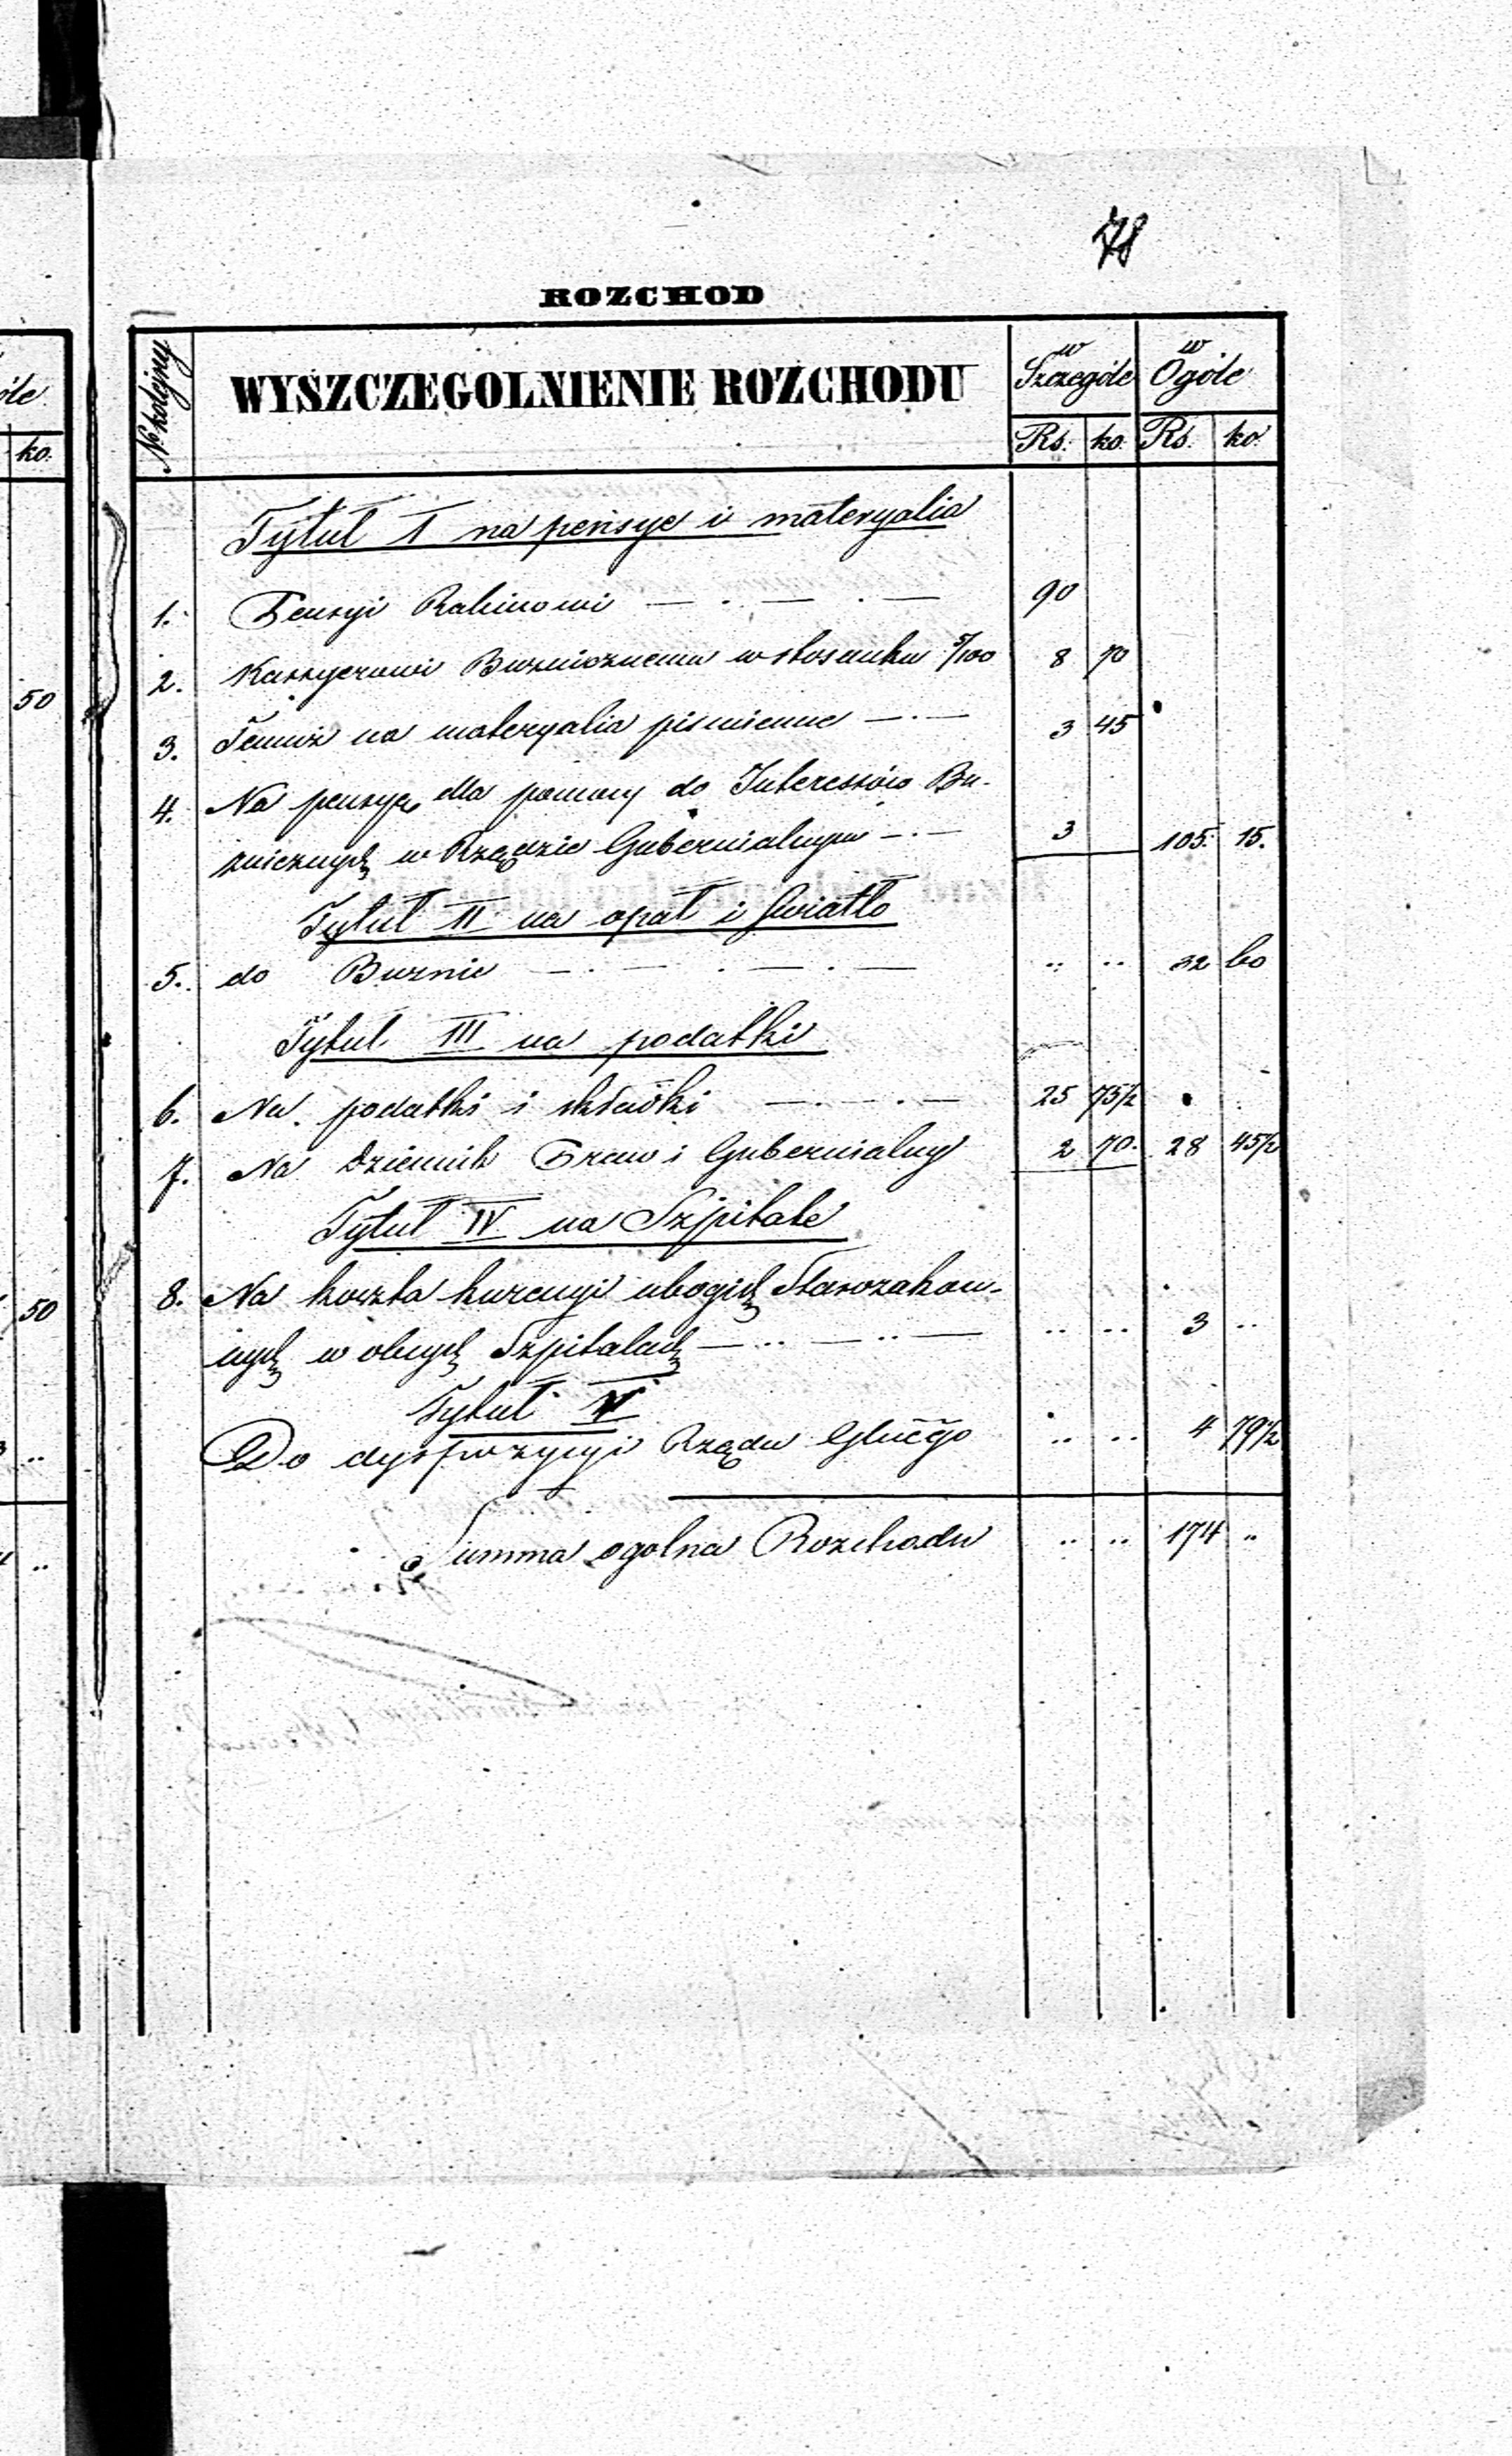 78
ROZCHOD
№ kolejny WYSZCZEGOLNIENIE ROZCHODU w Szczególe w Ogóle
Rs. ko. Rs. ko.
Tytuł I na pensye i materyalia
1. Pensyi Rabinowi — . — . — 90
2. Kassyerowi Buznicznemu w stosunku 5/100 8 70
3. Temuż na materyalia piśmienne — . — 3 45
4. Na pensyę dla pomocy do Interessów Bu-
znicznych w Rządzie Gubernialnym — . — 3 105. 15.
Tytuł II na opał i światło
5. do Buznic — . — . — . — .. .. 32 60
Tytuł III na podatki
6. Na podatki i składki — . — . — 25 75½
7. Na Dziennik Praw i Gubernialny 2 70. 28 45½
Tytuł IV na Szpitale
8. Na koszta kuracyi ubogich Starozakon-
nych w obcych Szpitalach — .. — .. — .. .. 3 ..
Tytuł V
Do dyspozycyi Rządu Glnego .. .. 4 79½
Summa ogolna Rozchodu .. .. 174 ..
óle
ko.
50
50
..
..